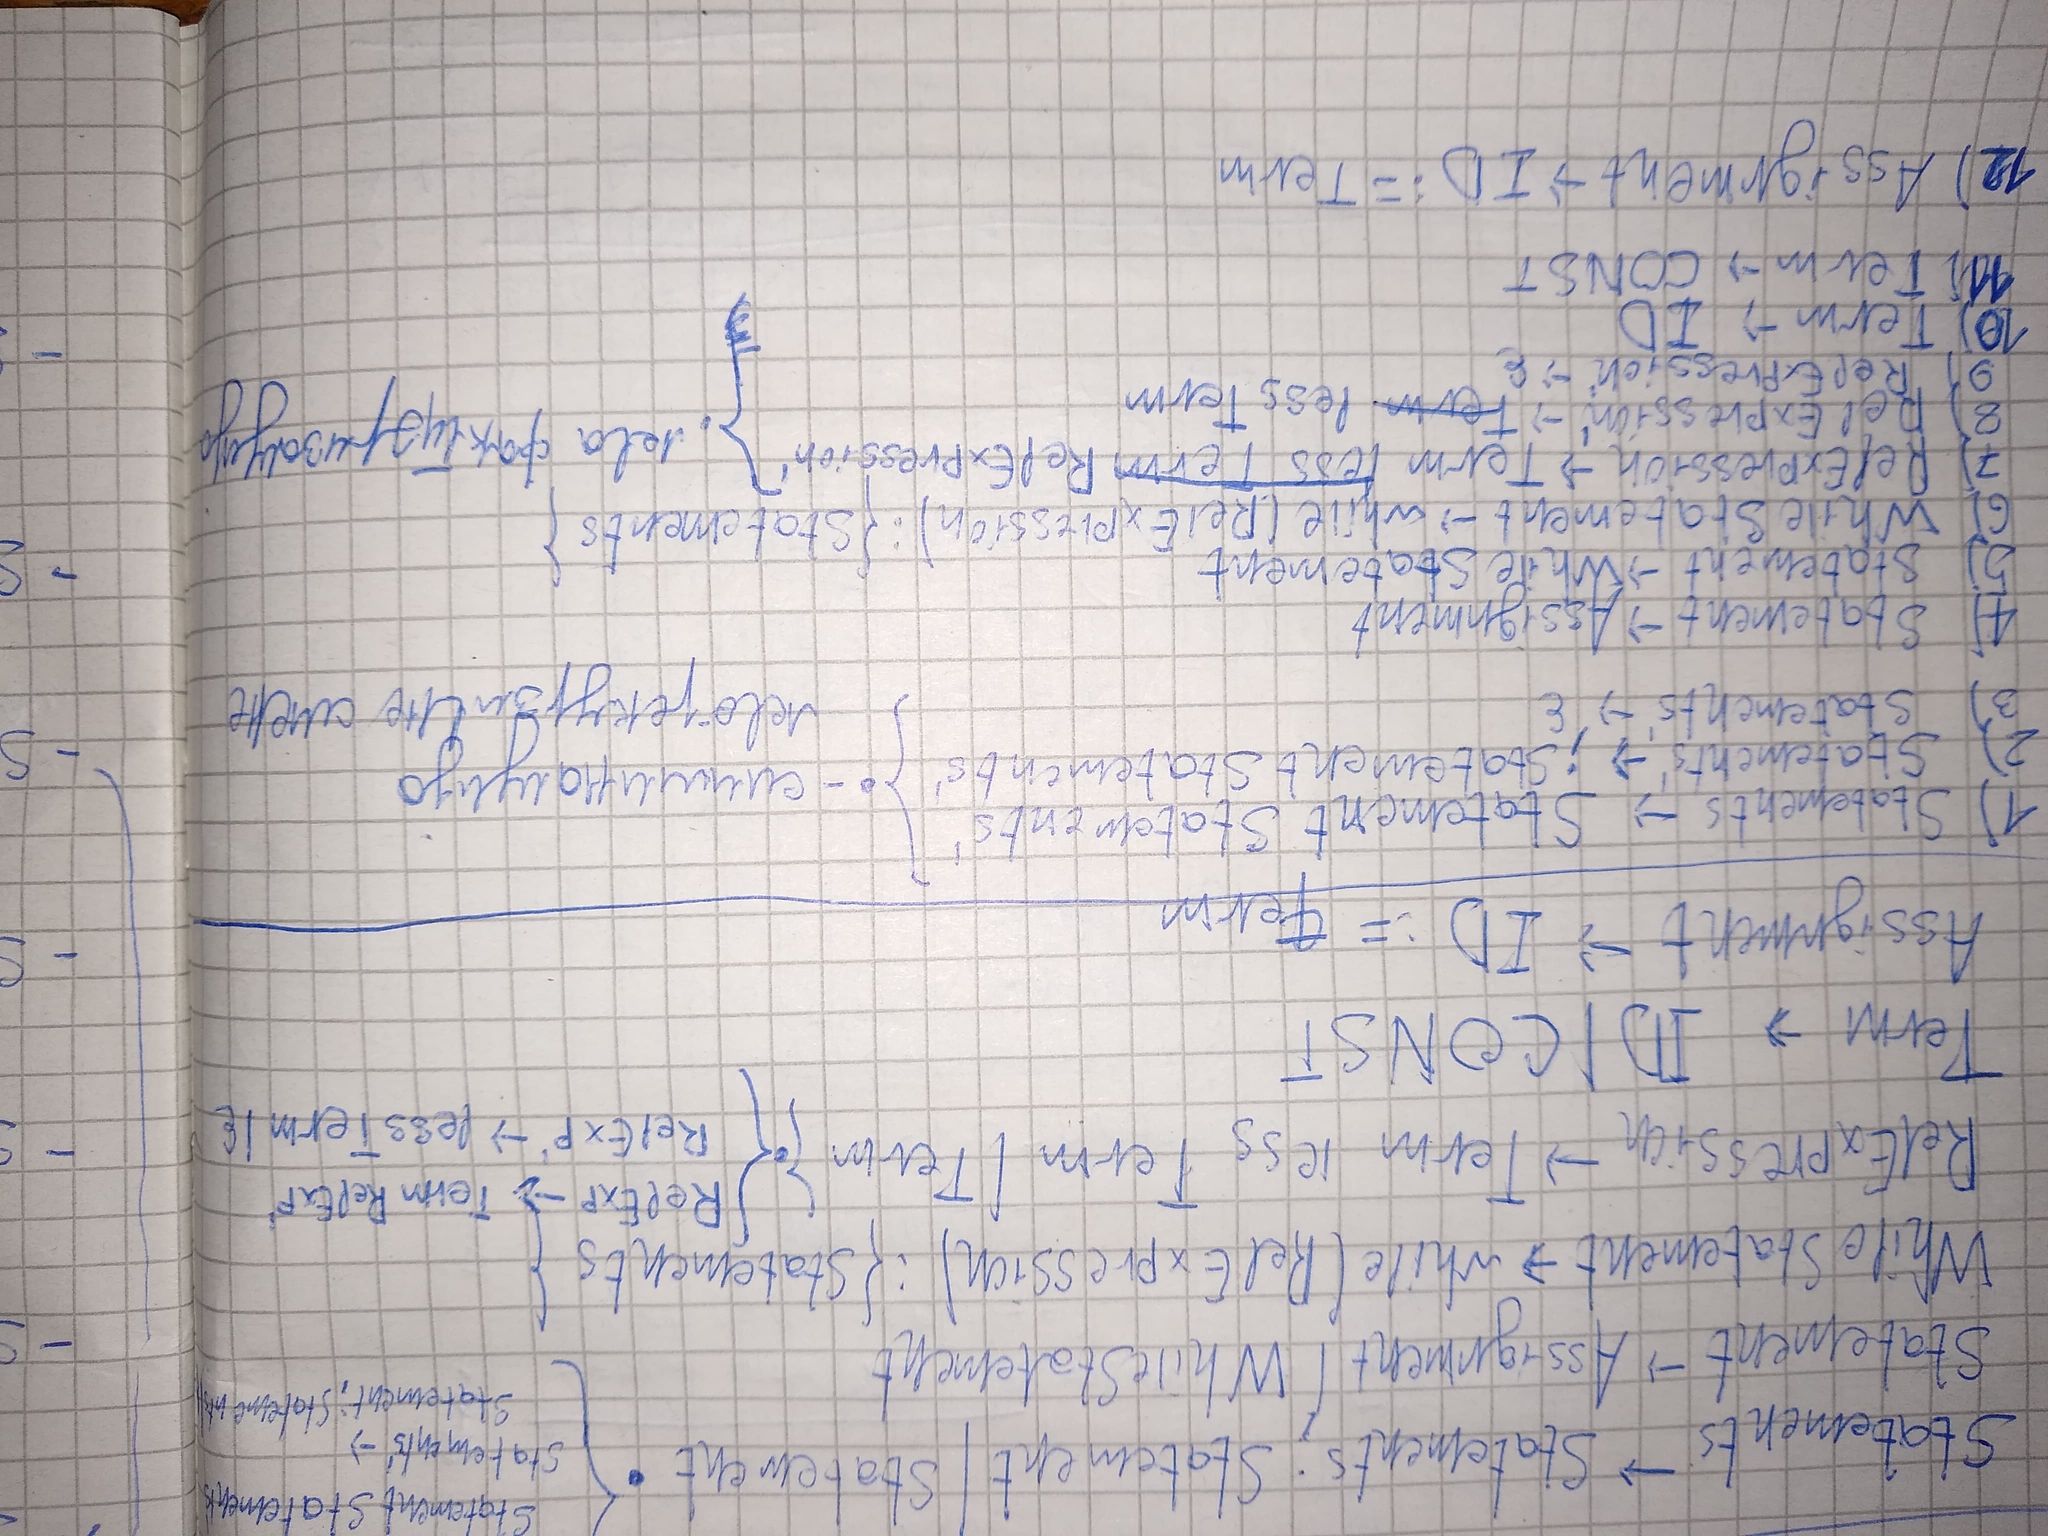 Statements → Statements; Statement | Statement
Statement Statements
Statements' →
Statement; Statements
Statement → Assignment | WhileStatement
WhileStatement → while (RelExpression) : { Statements }
RelExpression → Term less Term | Term
RelExp → Term RelExp'
RelExp' → less Term | ε
Term → ID | CONST
Assignment → ID := Term
1) Statements → Statement Statements'
2) Statements' → ; Statement Statements'
3) Statements' → ε
- елиминација
лево-рекурзивне смене
4) Statement → Assignment
5) Statement → While Statement
6) WhileStatement → while (RelExpression) : { Statements }
7) RelExpression → Term less Term RelExpression'
8) RelExpression' → Term less Term
9) RelExpression' → ε
лева факторизација
10) Term → ID
11) Term → CONST
12) Assignment → ID := Term
- S
- S
- S
- S
- S